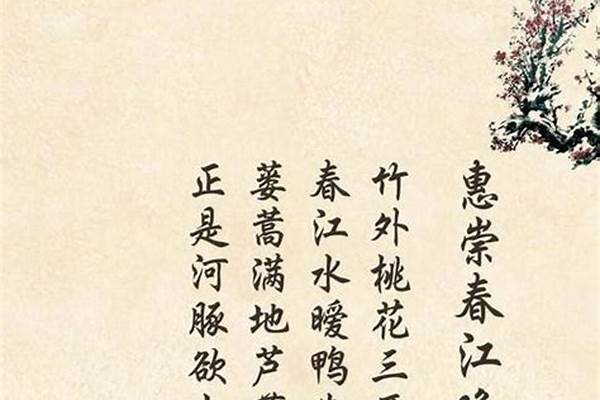 惠崇春江
竹外桃花三
春江水暧鸭
蒌蒿满地芦
正是河豚欲